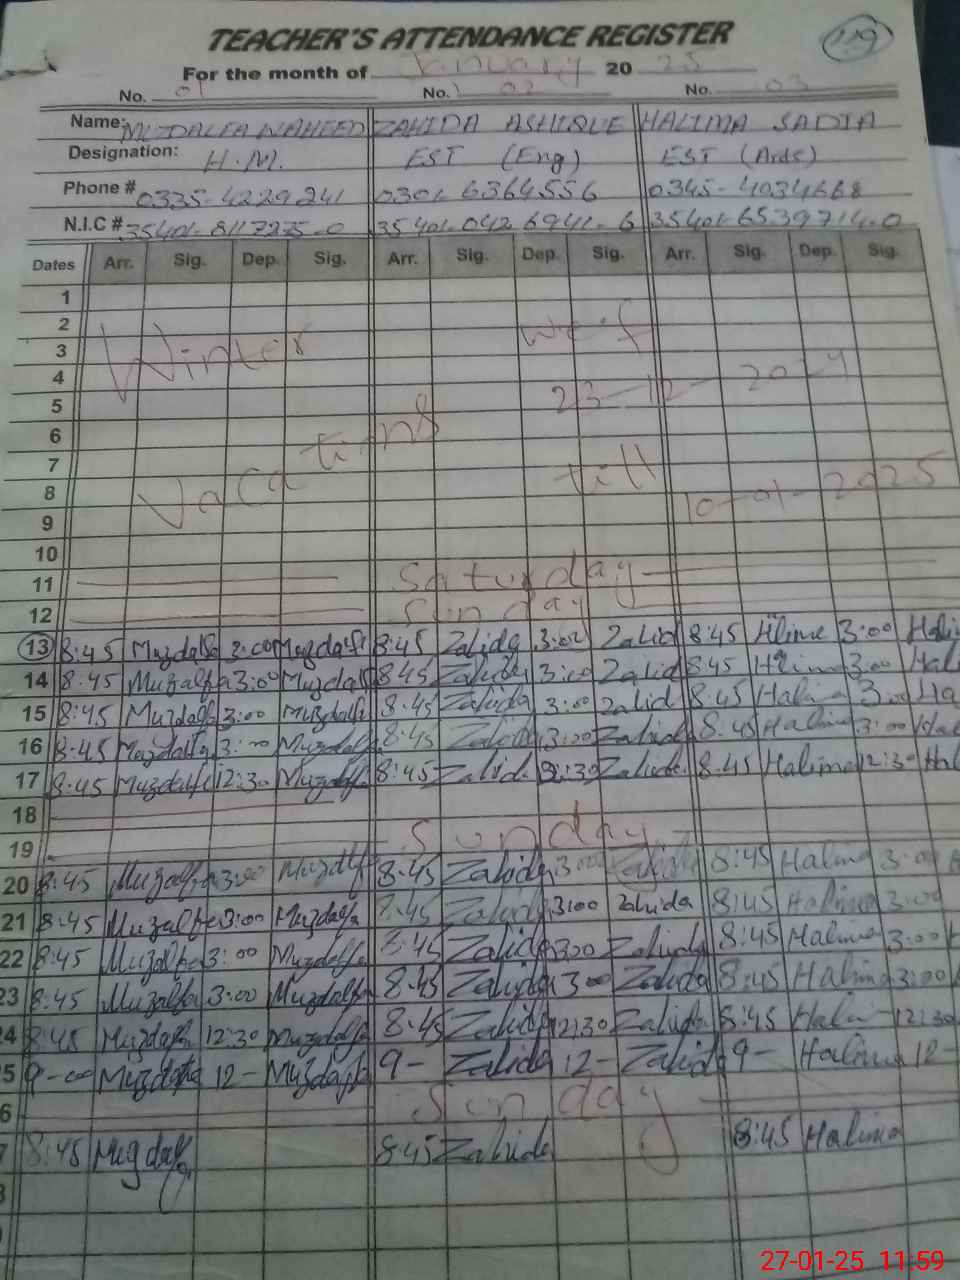 TEACHER'S ATTENDANCE REGISTER 119
For the month of January 20 25
No. 01 No. 02 No. 03
Name: MUZDALFA WAHEED ZAHIDA ASHIQUE HALIMA SADIA
Designation: H.M. EST (Eng) EST (Arts)
Phone # 0335-4229241 0301-6364556 0345-4034668
N.I.C # 35401-8117275-0 35401-0426941-6 35401-6539714-0
Dates Arr. Sig. Dep. Sig. Arr. Sig. Dep. Sig. Arr. Sig. Dep. Sig.
1
2
3 Winter w.e.f
4 23-12-2024
5
6
7 Vacations till
8 10-01-2025
9
10
11 Saturday
12 Sunday
13 8:45 Muzdalfa 3:00 Muzdalfa 8:45 Zahida 3:00 Zahid 8:45 Halima 3:00 Hali
14 8:45 Muzalfa 3:00 Muzdalfa 8:45 Zahida 3:00 Zahid 8:45 Halima 3:00 Hal
15 8:45 Muzdalfa 3:00 Muzdalfa 8:45 Zahida 3:00 Zahid 8:45 Halima 3:00 Ha
16 8:45 Muzdalfa 3:00 Muzdalfa 8:45 Zahida 3:00 Zahida 8:45 Halima 3:00 Hal
17 8:45 Muzdalfa 12:30 Muzdalfa 8:45 Zahida 12:30 Zahida 8:45 Halima 12:30 Hal
18
19 Sunday
20 8:45 Muzalfa 3:00 Muzdalfa 8:45 Zahida 3:00 Zahida 8:45 Halima 3:00
21 8:45 Muzalfa 3:00 Muzdalfa 8:45 Zahida 3:00 Zahida 8:45 Halima 3:00
22 8:45 Muzalfa 3:00 Muzdalfa 8:45 Zahida 3:00 Zahida 8:45 Halima 3:00
23 8:45 Muzalfa 3:00 Muzdalfa 8:45 Zahida 3:00 Zahida 8:45 Halima 3:00
24 8:45 Muzdalfa 12:30 Muzdalfa 8:45 Zahida 12:30 Zahida 8:45 Halima 12:30
5 9-00 Muzdalfa 12- Muzdalfa 9- Zahida 12- Zahida 9- Halima 12-
6 Sunday
7 8:45 Muzdalfa 8:45 Zahida 8:45 Halima
27-01-25 11:59